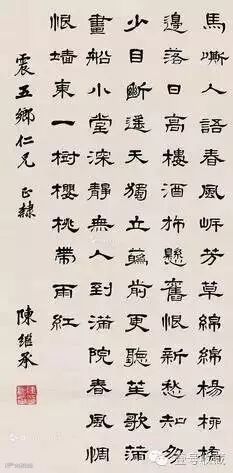 馬嘶人語春風岸芳草綿綿楊柳橋
邊落日高樓酒旆懸舊恨新愁知多
少目斷遙天獨立蘤前更聽笙歌滿
畫船小堂深靜無人到滿院春風惆
恨墻東一樹櫻桃帶雨紅
震五鄉仁兄 正隸
陳繼承